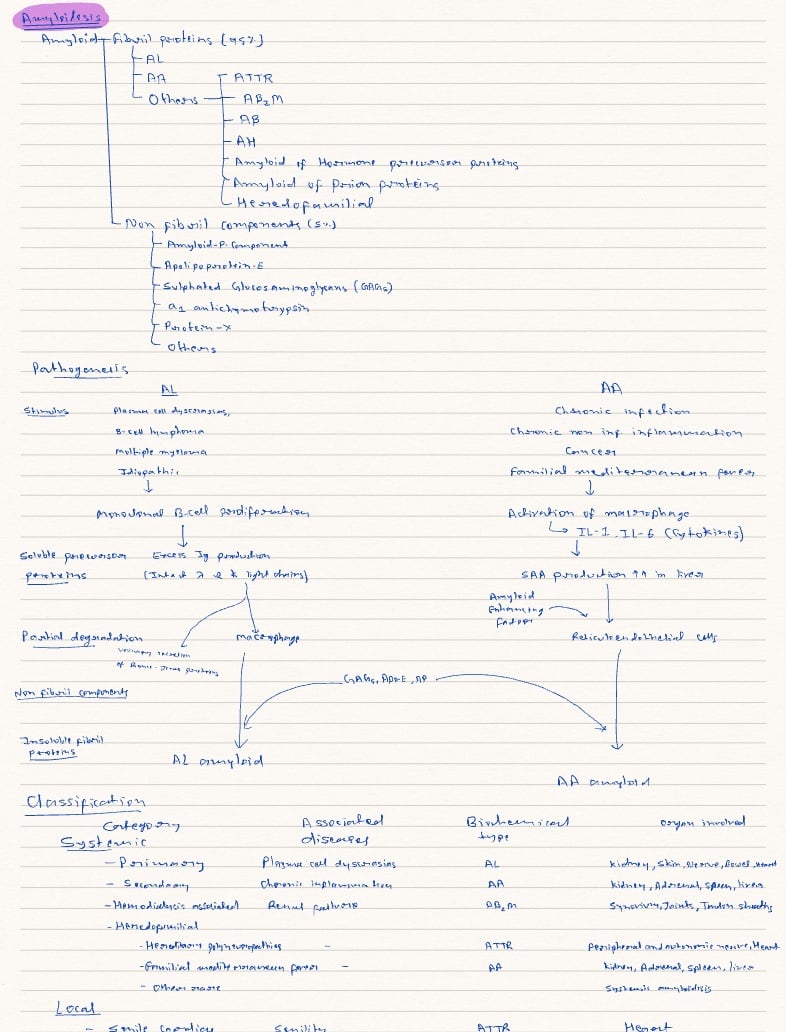 Amyloidosis
Amyloid Fibril proteins (95%)
AL
AA
Others
ATTR
AB₂M
AB
AH
Amyloid of Hormone precursor proteins
Amyloid of Prion proteins
Heredofamilial
Non fibril components (5%)
Amyloid-P-Component
Apolipoprotein-E
Sulphated Glucosaminoglycans (GAGs)
α1 antichymotrypsin
Protein-X
Others
Pathogenesis
AL AA
Stimulus Plasma cell dyscrasias, Chronic infection
B-cell lymphoma Chronic non inf inflammation
Multiple myeloma Cancer
Idiopathic Familial mediterranean fever
Monoclonal B-cell proliferation Activation of macrophage
IL-1, IL-6 (cytokines)
Soluble precursor Excess Ig production
proteins (Intact λ & k light chains) SAA production ↑↑ in liver
Amyloid
Enhancing
Factor
Partial degradation Macrophage Reticuloendothelial cells
Urinary excretion
of Bence-Jones proteins
GAGs, ApoE, AP
Non fibril components
Insoluble fibril
proteins
AL amyloid
AA amyloid
Classification
Category Associated diseases Biochemical type organ involved
Systemic
- Primary Plasma cell dyscrasias AL kidney, Skin, Nerve, Bowel, Heart
- Secondary Chronic inflammation AA kidney, Adrenal, spleen, liver
- Hemodialysis associated Renal failure AB₂M Synovium, Joints, Tendon sheaths
- Heredofamilial
- Hereditary polyneuropathies - ATTR Peripheral and autonomic nerve, Heart
- Familial mediterranean fever - AA kidney, Adrenal, Spleen, liver
- Others rare Systemic amyloidosis
Local
- Senile cardiac Senility ATTR Heart